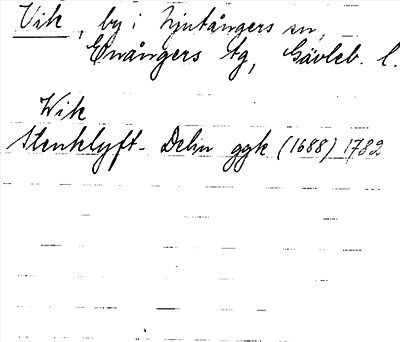 Vik, by i Njutångers sn,
Enångers tg, Gävleb. l.
Wik
Stenklyft- Delin ggk (1688) 1782